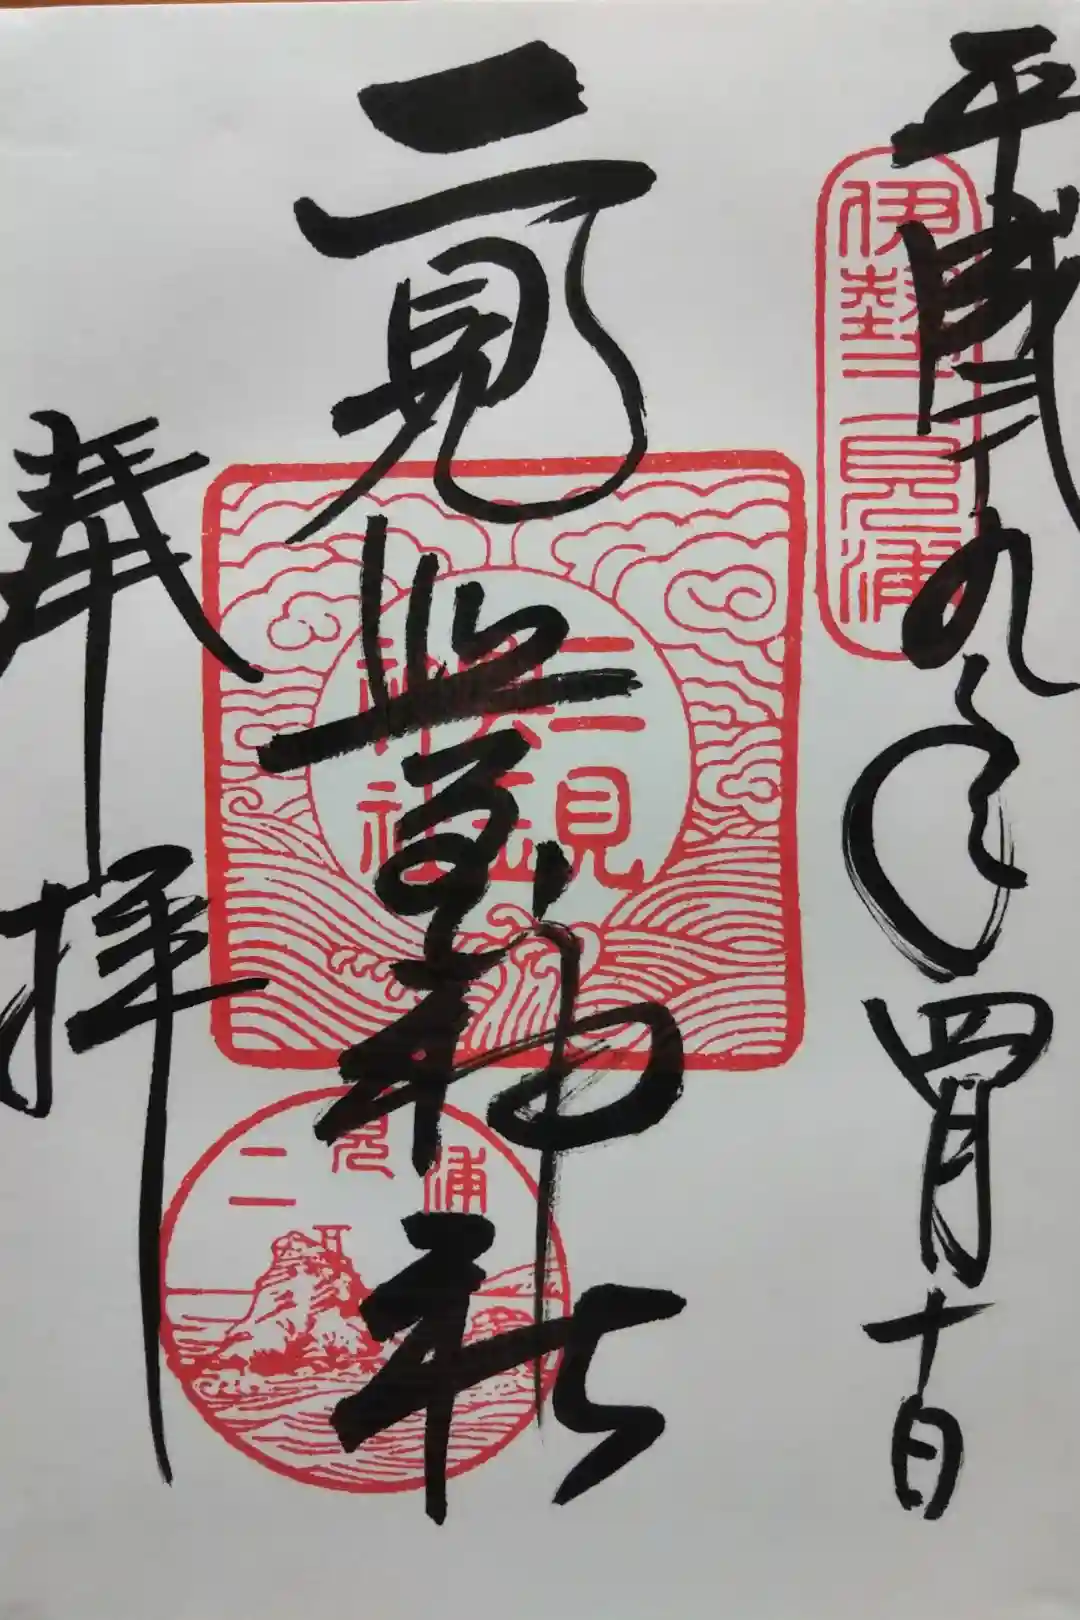 平成二十九年四月十日
伊勢二見浦
二見興玉神社
二見興玉神社
二見浦
奉拝